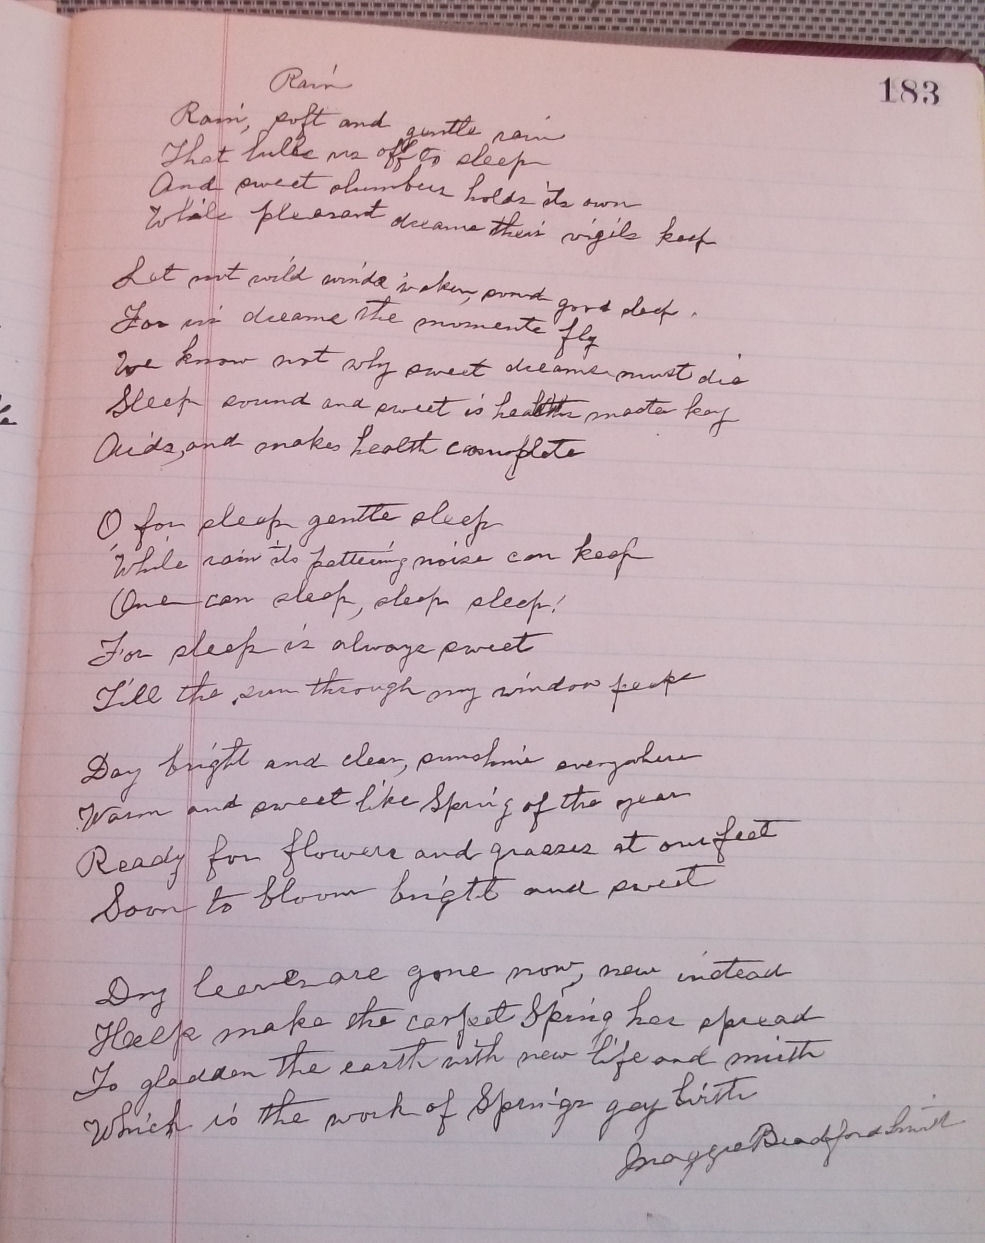 183
Rain
Rain, soft and gentle rain
That lulls us off to sleep
And sweet slumbers holds its own
While pleasant dreams their vigils keep
Let not wild winds waken, sound good sleep.
For in dreams the moments fly
We know not why sweet dreams must die
Sleep sound and sweet is healths master key
Aids, and makes health complete
O for sleep gentle sleep
While rain its pattering noise can keep
One can sleep, sleep sleep!
For sleep is always sweet
Till the sun through my window peeps
Day bright and clear, sunshine everywhere
Warm and sweet like Spring of the year
Ready for flowers and grasses at our feet
Soon to bloom bright and sweet
Dry leaves are gone now, new instead
Help make the carpet Spring has spread
To gladden the earth with new life and mirth
Which is the work of Springs gay birth
Maggie Bradford Smith